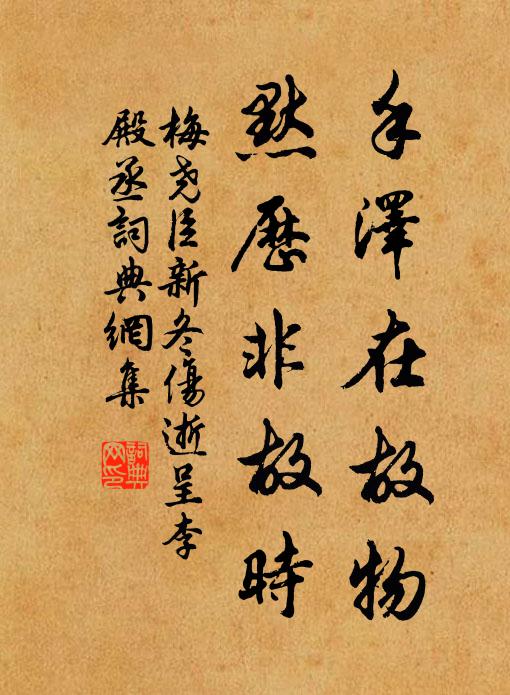 手澤在故物
黙歷非故時
梅堯臣新冬傷逝呈李
殿丞詞典網集
詞典
网印